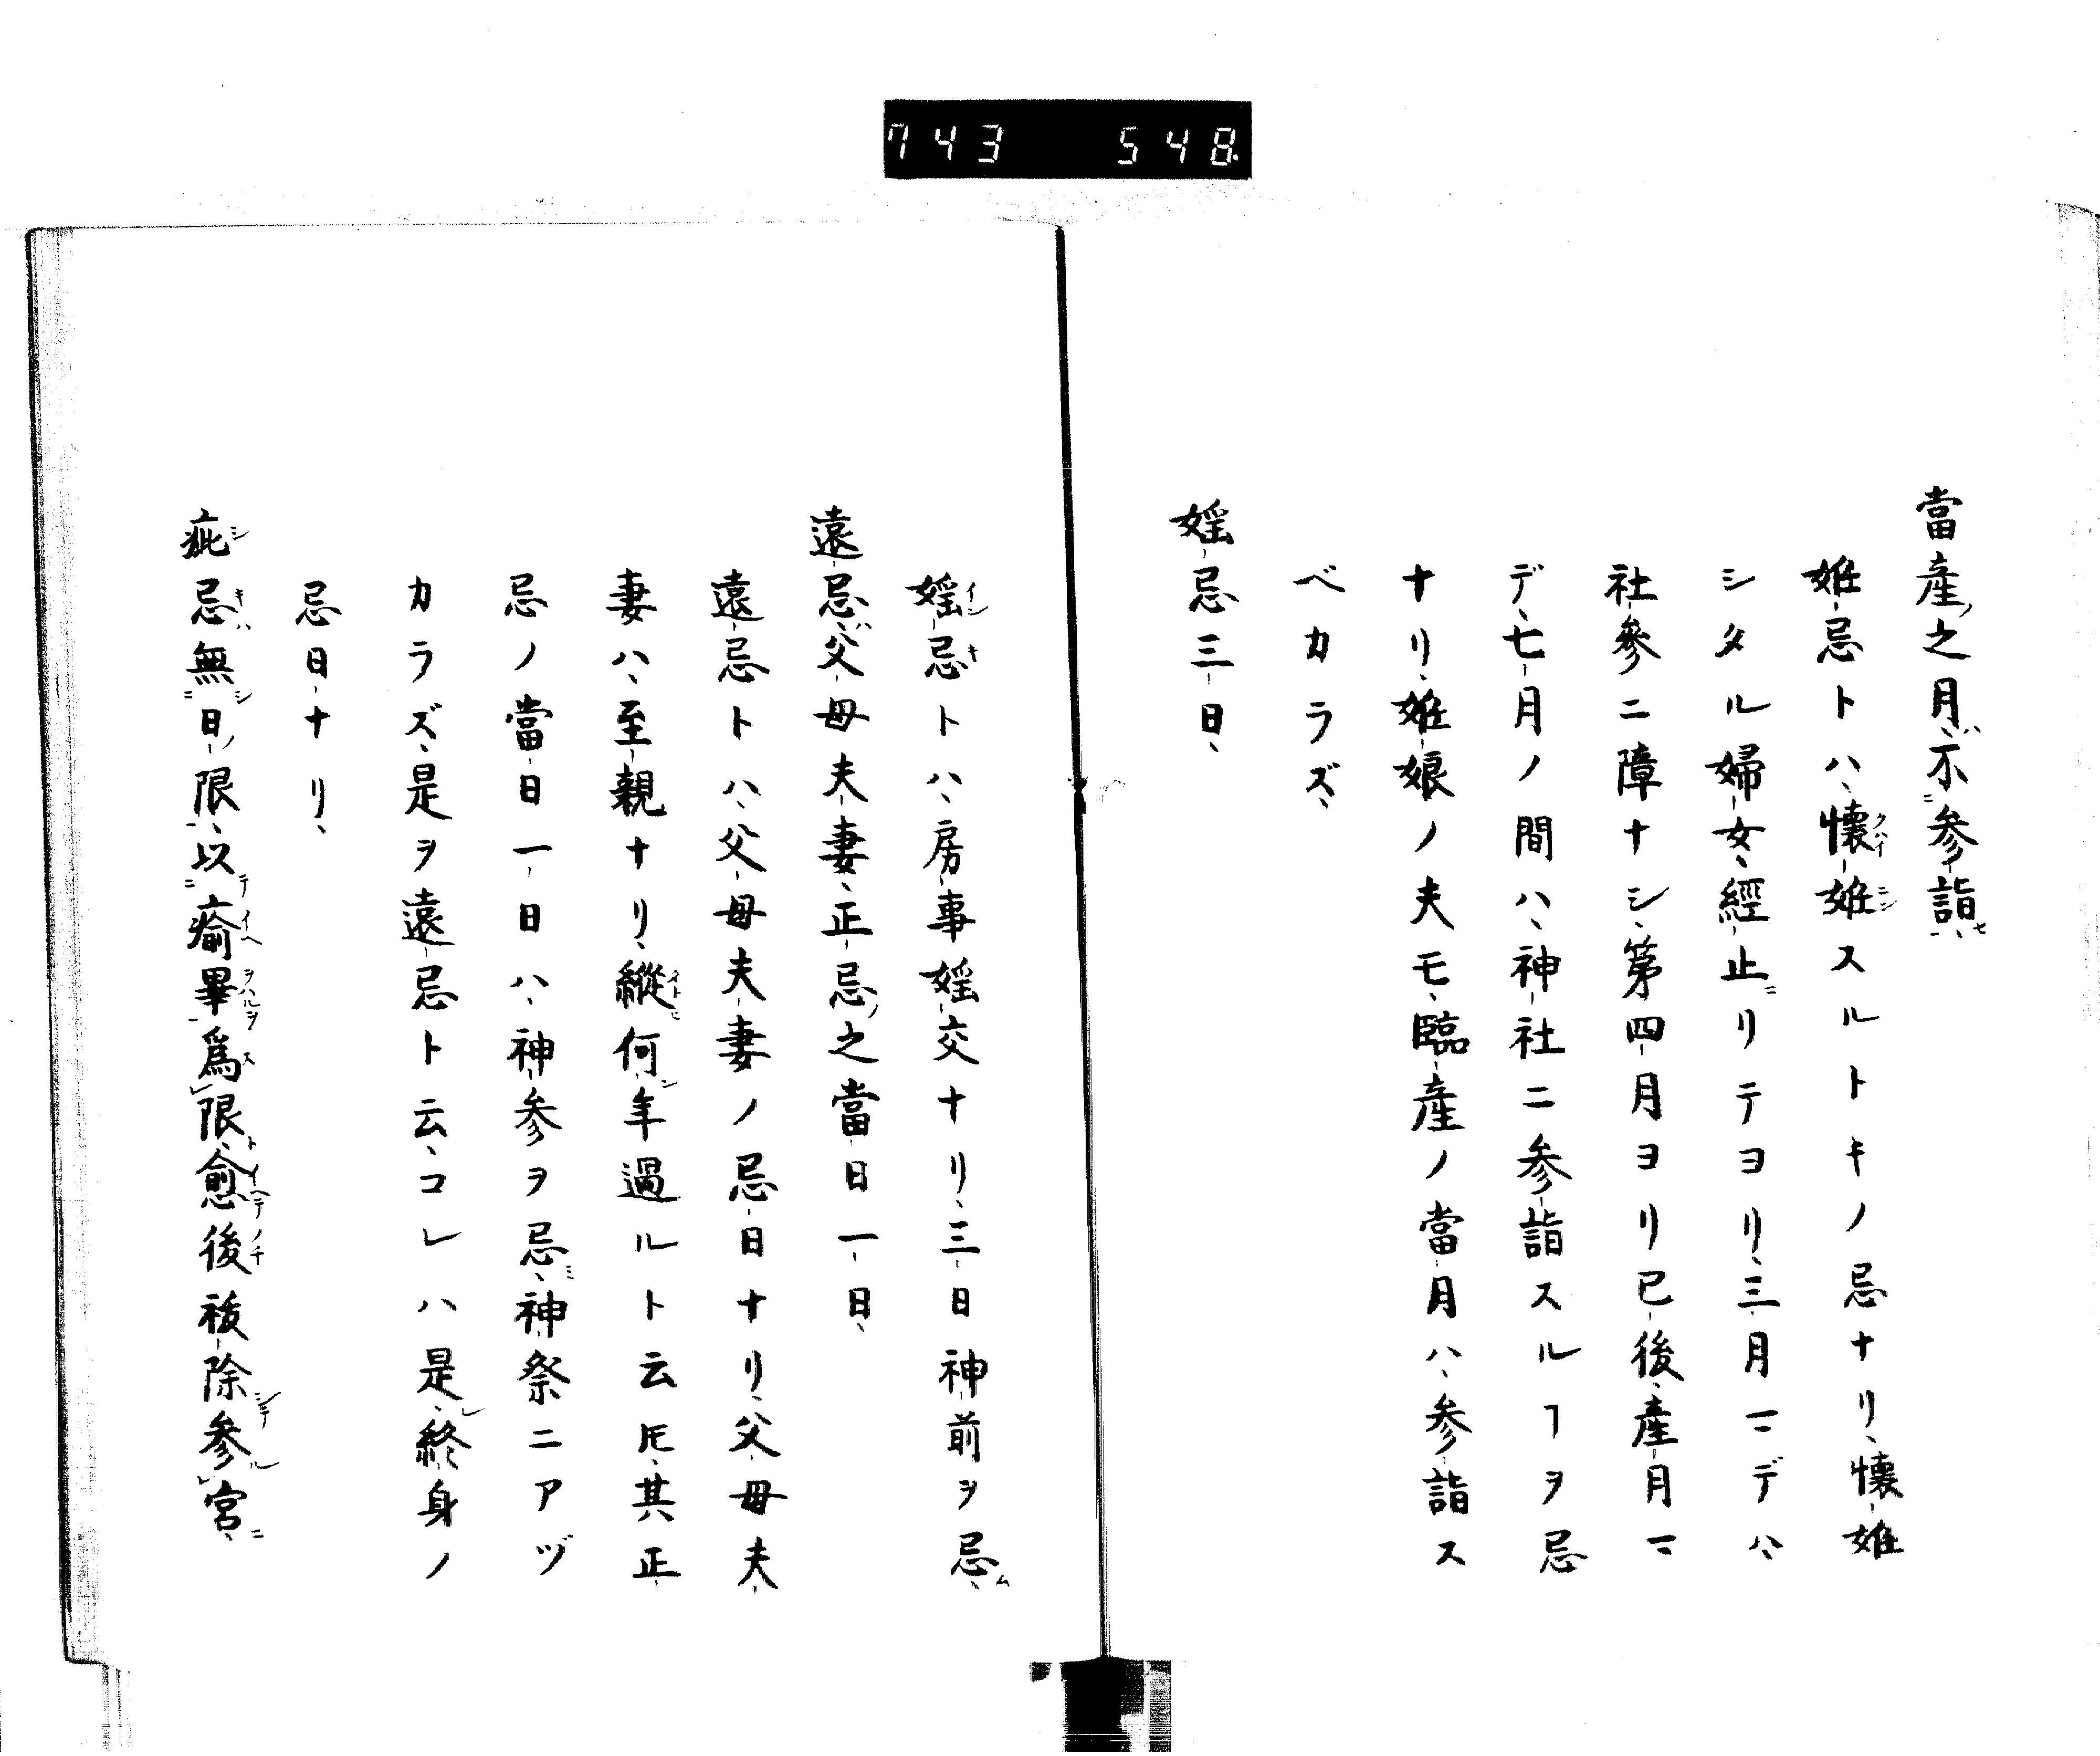 743 548.
當産之月、不参詣、
姙忌トハ、懐姙スルトキノ忌ナリ、懐姙
シタル婦女、經止リテヨリ、三月マデハ、
社參ニ障ナシ、第四月ヨリ已後、産月マ
デ、七月ノ間ハ、神社ニ参詣スルヿヲ忌
ナリ、姙娘ノ夫モ、臨産ノ當月ハ、参詣ス
ベカラズ、
婬忌三日、
婬忌トハ、房事婬交ナリ、三日神前ヲ忌、
遠忌、父母夫妻、正忌之當日一日、
遠忌トハ、父母夫妻ノ忌日ナリ、父母夫
妻ハ、至親ナリ、縱何年過ルト云𪜈、其正
忌ノ當日一日ハ、神参ヲ忌、神祭ニアヅ
カラズ、是ヲ遠忌ト云、コレハ是、終身ノ
忌日ナリ、
疵忌無日限、以瘉畢爲限、愈後祓除参宮、